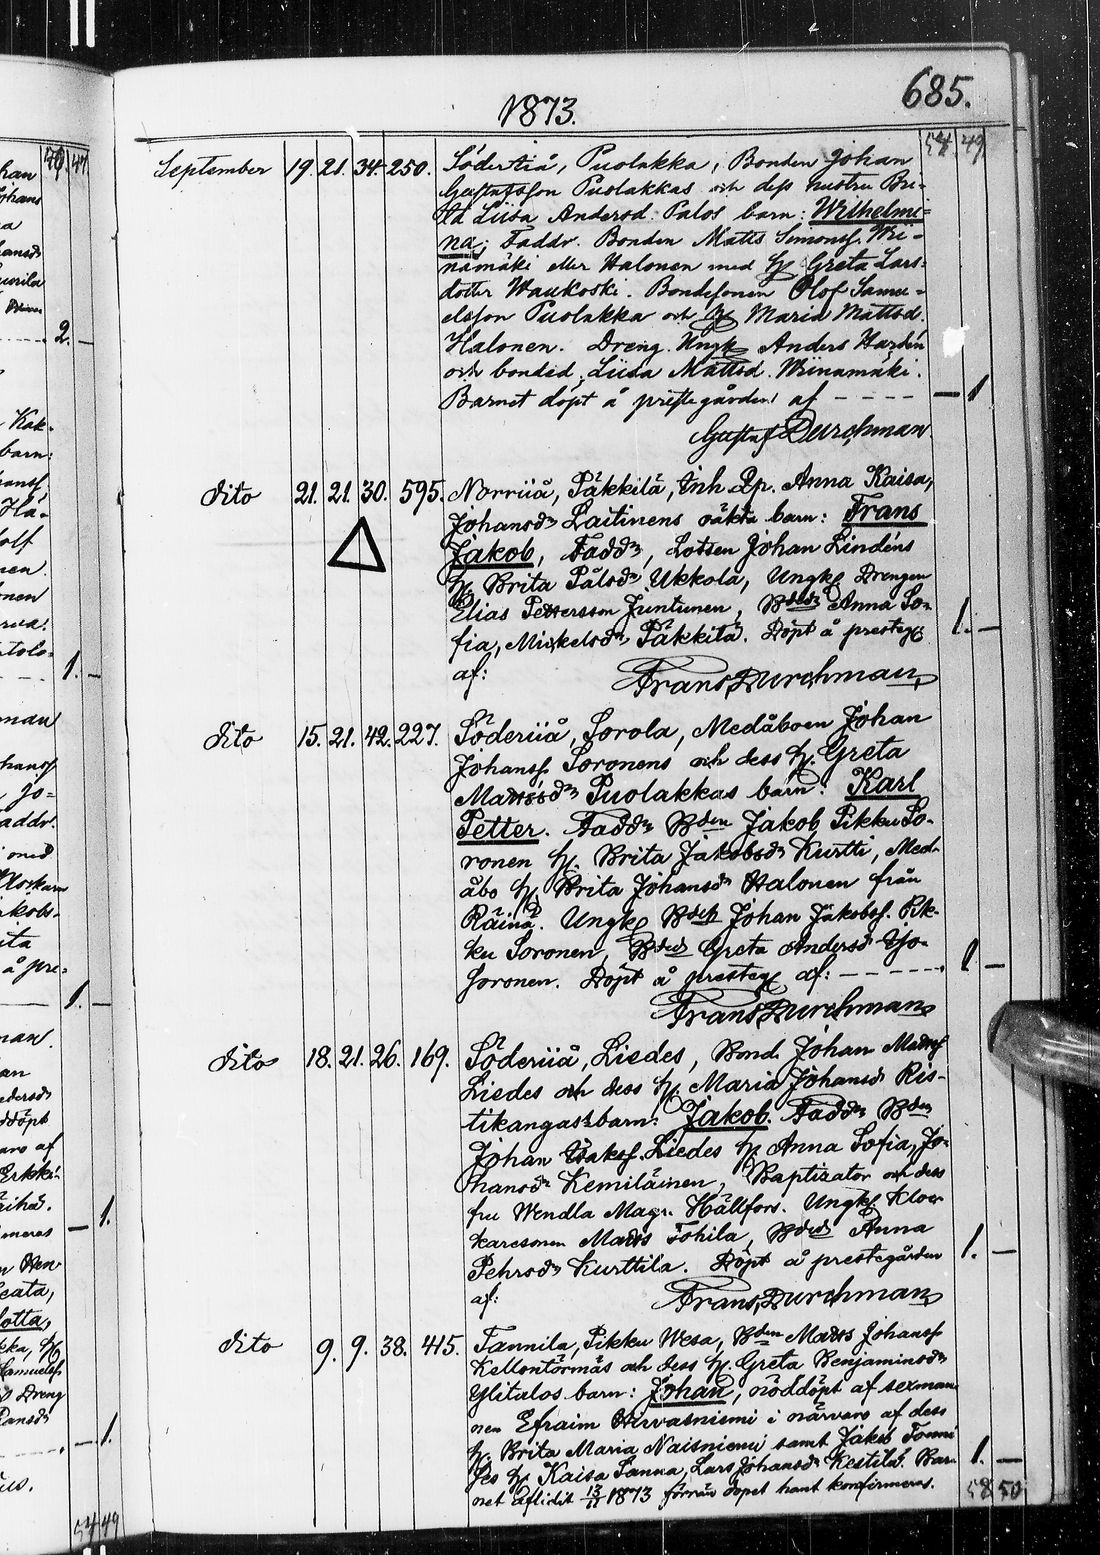 685.
1873.
54 49
September 19. 21. 34. 250. Söderiiå, Puolakka, Bonden Johan
Gustafsson Puolakkas och dess hustru Bri-
ta Liisa Andersd. Palos barn: Wilhelmi-
na; Faddr. Bonden Matts Simonss. Wii-
namäki eller Halonen med H. Greta Lars-
dotter Waukoski. Bondesonen Olof Samu-
elsson Puolakka och H. Maria Mattsd.
Halonen. Dreng. Ungk. Anders Hardén
och bonded. Liisa Mattsd. Wiinamäki.
Barnet döpt å prestegården af - - - - — 1
Gustaf Durchman.
Dito 21. 21. 30. 595. Norriiå, Päkkilä, Inh. Pp. Anna Kaisa,
Johansdr Laitinens oäkta barn: Frans
Jakob, Faddr, Lotsen Johan Lindéns
H. Brita Pålsdr Ukkola, Ungk. Drengen
Elias Pettersson Juntunen, Bdedr Anna So-
fia, Mickelsdr Päkkilä. Döpt å presteg. 1. —
af: Frans Durchman
Dito 15. 21. 42. 227. Söderiiå, Sorola, Medåboen Johan
Johanss. Soronens och dess H. Greta
Mattsdr Puolakkas barn: Karl
Petter. Faddr Bden Jakob Pikku So-
ronen H. Brita Jakobsdr Kurtti, Med-
åbo H. Brita Johansdr Halonen från
Räinä. Ungk. Bdes. Johan Jakobss. Pik-
ku Soronen, Bded. Greta Andersdr Yjo-
Soronen. Döpt å presteg. af: - - - - 1 —
Frans Durchman
Dito 18. 21. 26. 169. Söderiiå, Liedes, Bond. Johan Matts.
Liedes och dess H. Maria Johansdr Ris-
tikangas barn: Jakob. Faddr Bden
Johan Isakss. Liedes H. Anna Sofia, Jo-
hansdr Kemiläinen, Baptizator och dess
fru Wendla Magr. Hällfors. Ungk. Kloc-
karesonen Matts Tohila, Bdedr Anna
Pehrsdr Kurttila. Döpt å prestegården 1. —
af: Frans Durchman
Dito 9. 9. 38. 415. Tannila, Pikku Wesa, Bden Matts Johanss.
Kellontörmäs och dess H. Greta Benjaminsdr
Ylitalos barn: Johan, nöddöpt af sexman-
nen Efraim Hirvasniemi i närvaro af dess
H. Brita Maria Naisniemi samt Jakob
H. Kaisa Sanna, Lars Johansdr Kestilä. Bar- 1. —
net aflidit 13/11 1873 förrän dopet hant konfirmeras. 58 50